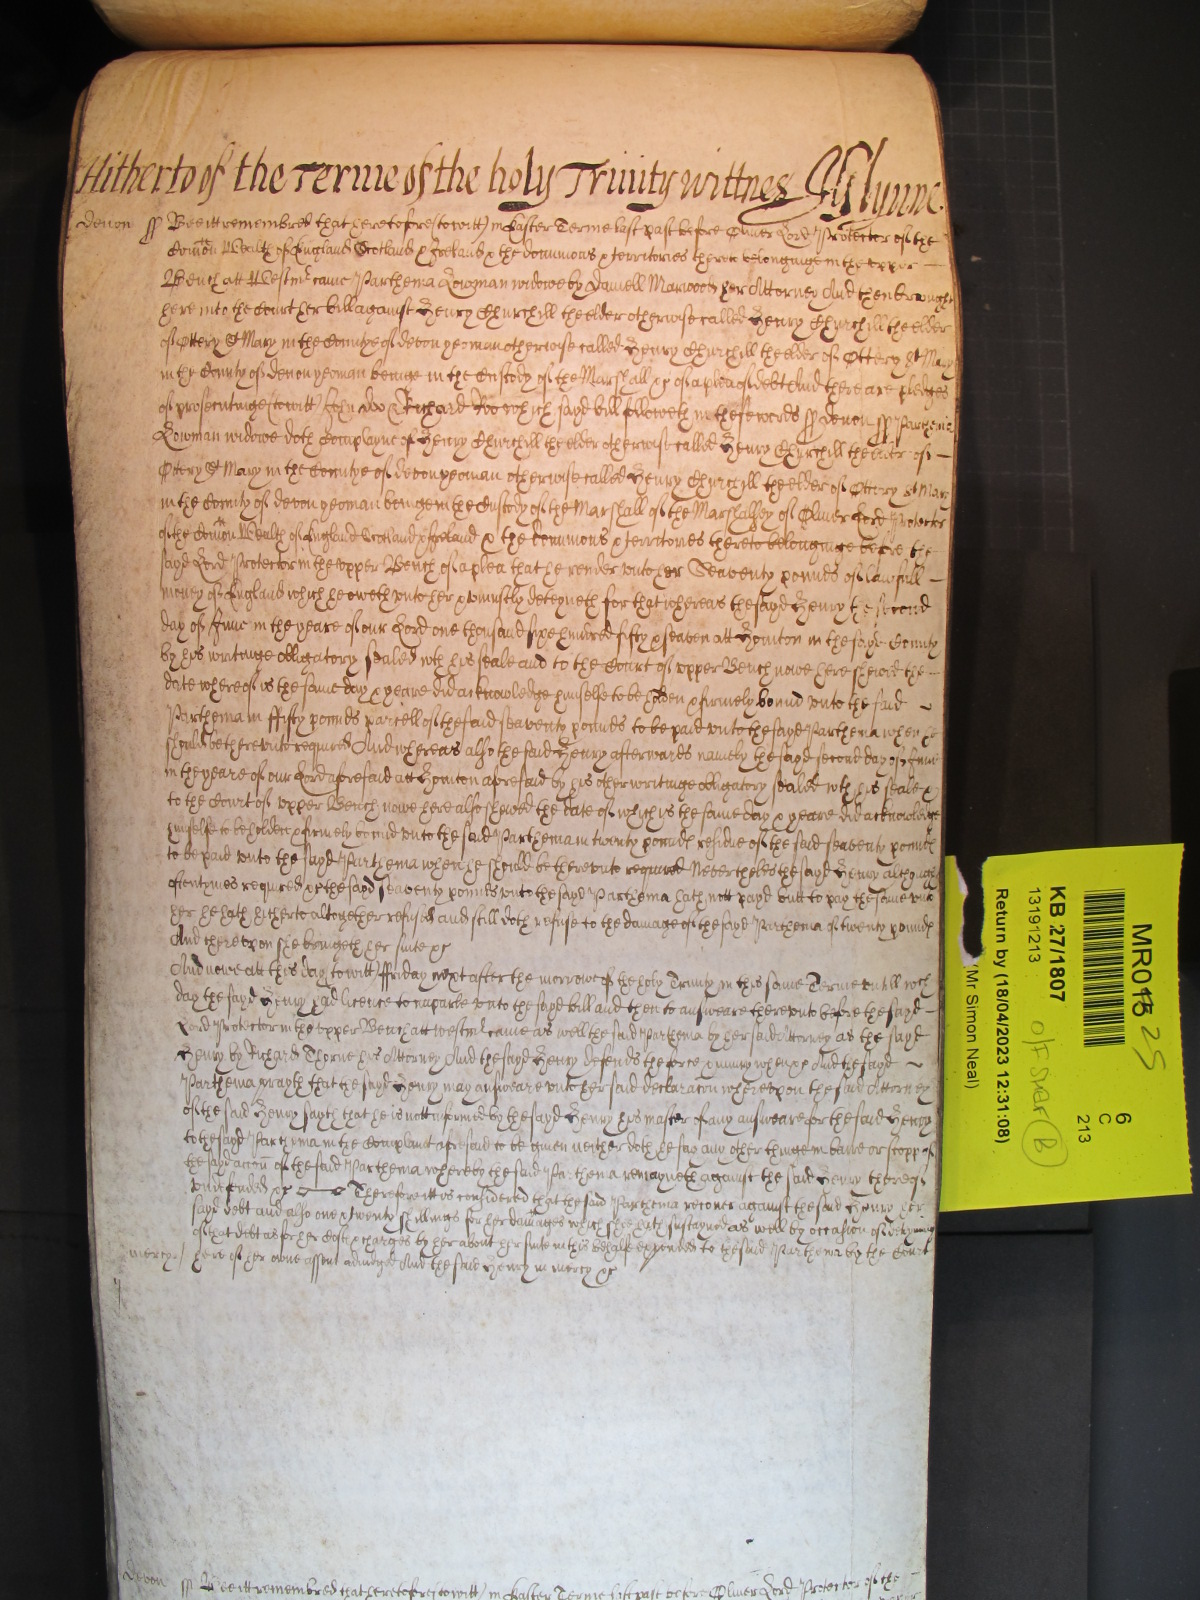 Hitherto of the Terme of the holy Trinity wittnes Jo Glynne
Devon ss Bee itt remembred that heretofore (to witt) in Easter Terme last past before Oliver Lord Protector of the
Com̄on Wealth of England Scotland & Ireland & the dominions & territories thereto belonginge in the upper
Bench att Westmr came Parthema Lowman widowe by Daniell Marwood her Attorney And then brought
here into the Court her bill against Henry Churchill the elder otherwise called Henry Churchill the elder
of Ottery St Mary in the County of devon yeoman otherwise called Henry Churchill the elder of Ottery St Mary
in the County of devon yeoman beinge in the Custody of the Marshall &c of a plea of debt And there are pledges
of prosecutinge (to witt) John Doo & Richard Roo which sayd bill followeth in these words ss Devon ss Parthema
Lowman widowe doth Complayne of Henry Churchill the elder otherwise called Henry Churchill the elder of
Ottery St Mary in the Countye of devon yeoman otherwise called Henry Churchill the elder of Ottery St Mary
in the County of devon yeoman beinge in the Custody of the Marshall of the Marshalsey of Oliver Lord Protector
of the Com̄on Wealth of England Scotland & Ireland & the dominions & territories thereto belonginge before the
sayd Lord Protector in the upper Bench of a plea that he render unto her Seaventy pounds of lawfull
money of England which he oweth unto her & uniustly deteyneth for that whereas the sayd Henry the second
day of June in the yeare of our Lord one thousand sixe hundred fifty & seaven att Honiton in the sayd County
by his writinge obligatory sealed wth his seale and to the Court of upper Bench nowe here shewed the
date whereof is the same day & yeare did acknowledge himselfe to be holden & firmely bound unto the said
Parthema in ffifty pounds parcell of the said seaventy pounds to be paid unto the sayd Parthema when he
should be thereunto required And whereas also the said Henry afterwards namely the sayd second day of June
in the yeare of our Lord aforesaid att Honiton aforesaid by his other writinge obligatory sealed wth his seale &
to the Court of upper Bench nowe here also shewed the date of which is the same day & yeare did acknowledge
himselfe to be holden & firmely bound unto the said Parthema in twenty pounds residue of the said seaventy pounds
to be paid unto the sayd Parthema when he should be thereunto required Neverthelesse the sayd Henry although
oftentymes required &c the sayd seaventy pounds unto the sayd Parthema hath nott payd butt to pay the same unto
her he hath hitherto altogether refused and still doth refuse to the damage of the sayd Parthema of twenty pounds
And thereupon she bringeth her suite &c
And nowe att this day to witt ffriday next after the morrowe of the holy Trinity in this same Terme untill wch
day the sayd Henry had licence to imparle unto the sayd bill and then to answeare thereunto before the sayd
Lord Protector in the upper Bench att Westmr came as well the said Parthema by her said Attorney as the sayd
Henry by Richard Thorne his Attorney And the sayd Henry defends the force & iniury when &c And the sayd
Parthema prayth that the sayd Henry may answeare unto her said declaration whereupon the said Attorney
of the said Henry sayth that he is nott informed by the sayd Henry his master of any answeare for the said Henry
to the sayd Parthema in the Complaint aforesaid to be given neither doth he say any other thinge in barre or stopp of
the sayd accōn of the said Parthema whereby the said Parthema remayneth against the said Henry thereof
undefended &c Therefore itt is considered that the said Parthema recover against the said Henry her
sayd debt and also one & twenty shillings for her damages which she hath sustayned as well by occasion of deteyning
of that debt as for her Costs & charges by her about her suite in this behalfe expended to the said Parthema by the Court
mercy / here of her owne assent adiudged And the said Henry in mercy &c
Devon ss Bee itt remembred that heretofore (to witt) in Easter Terme last past before Oliver Lord Protector of the
MR015 25
6
C
213
KB 27/1807
13191213
O/F Shelf (B)
Return by (18/04/2023 12:31:08)
(Mr Simon Neal)